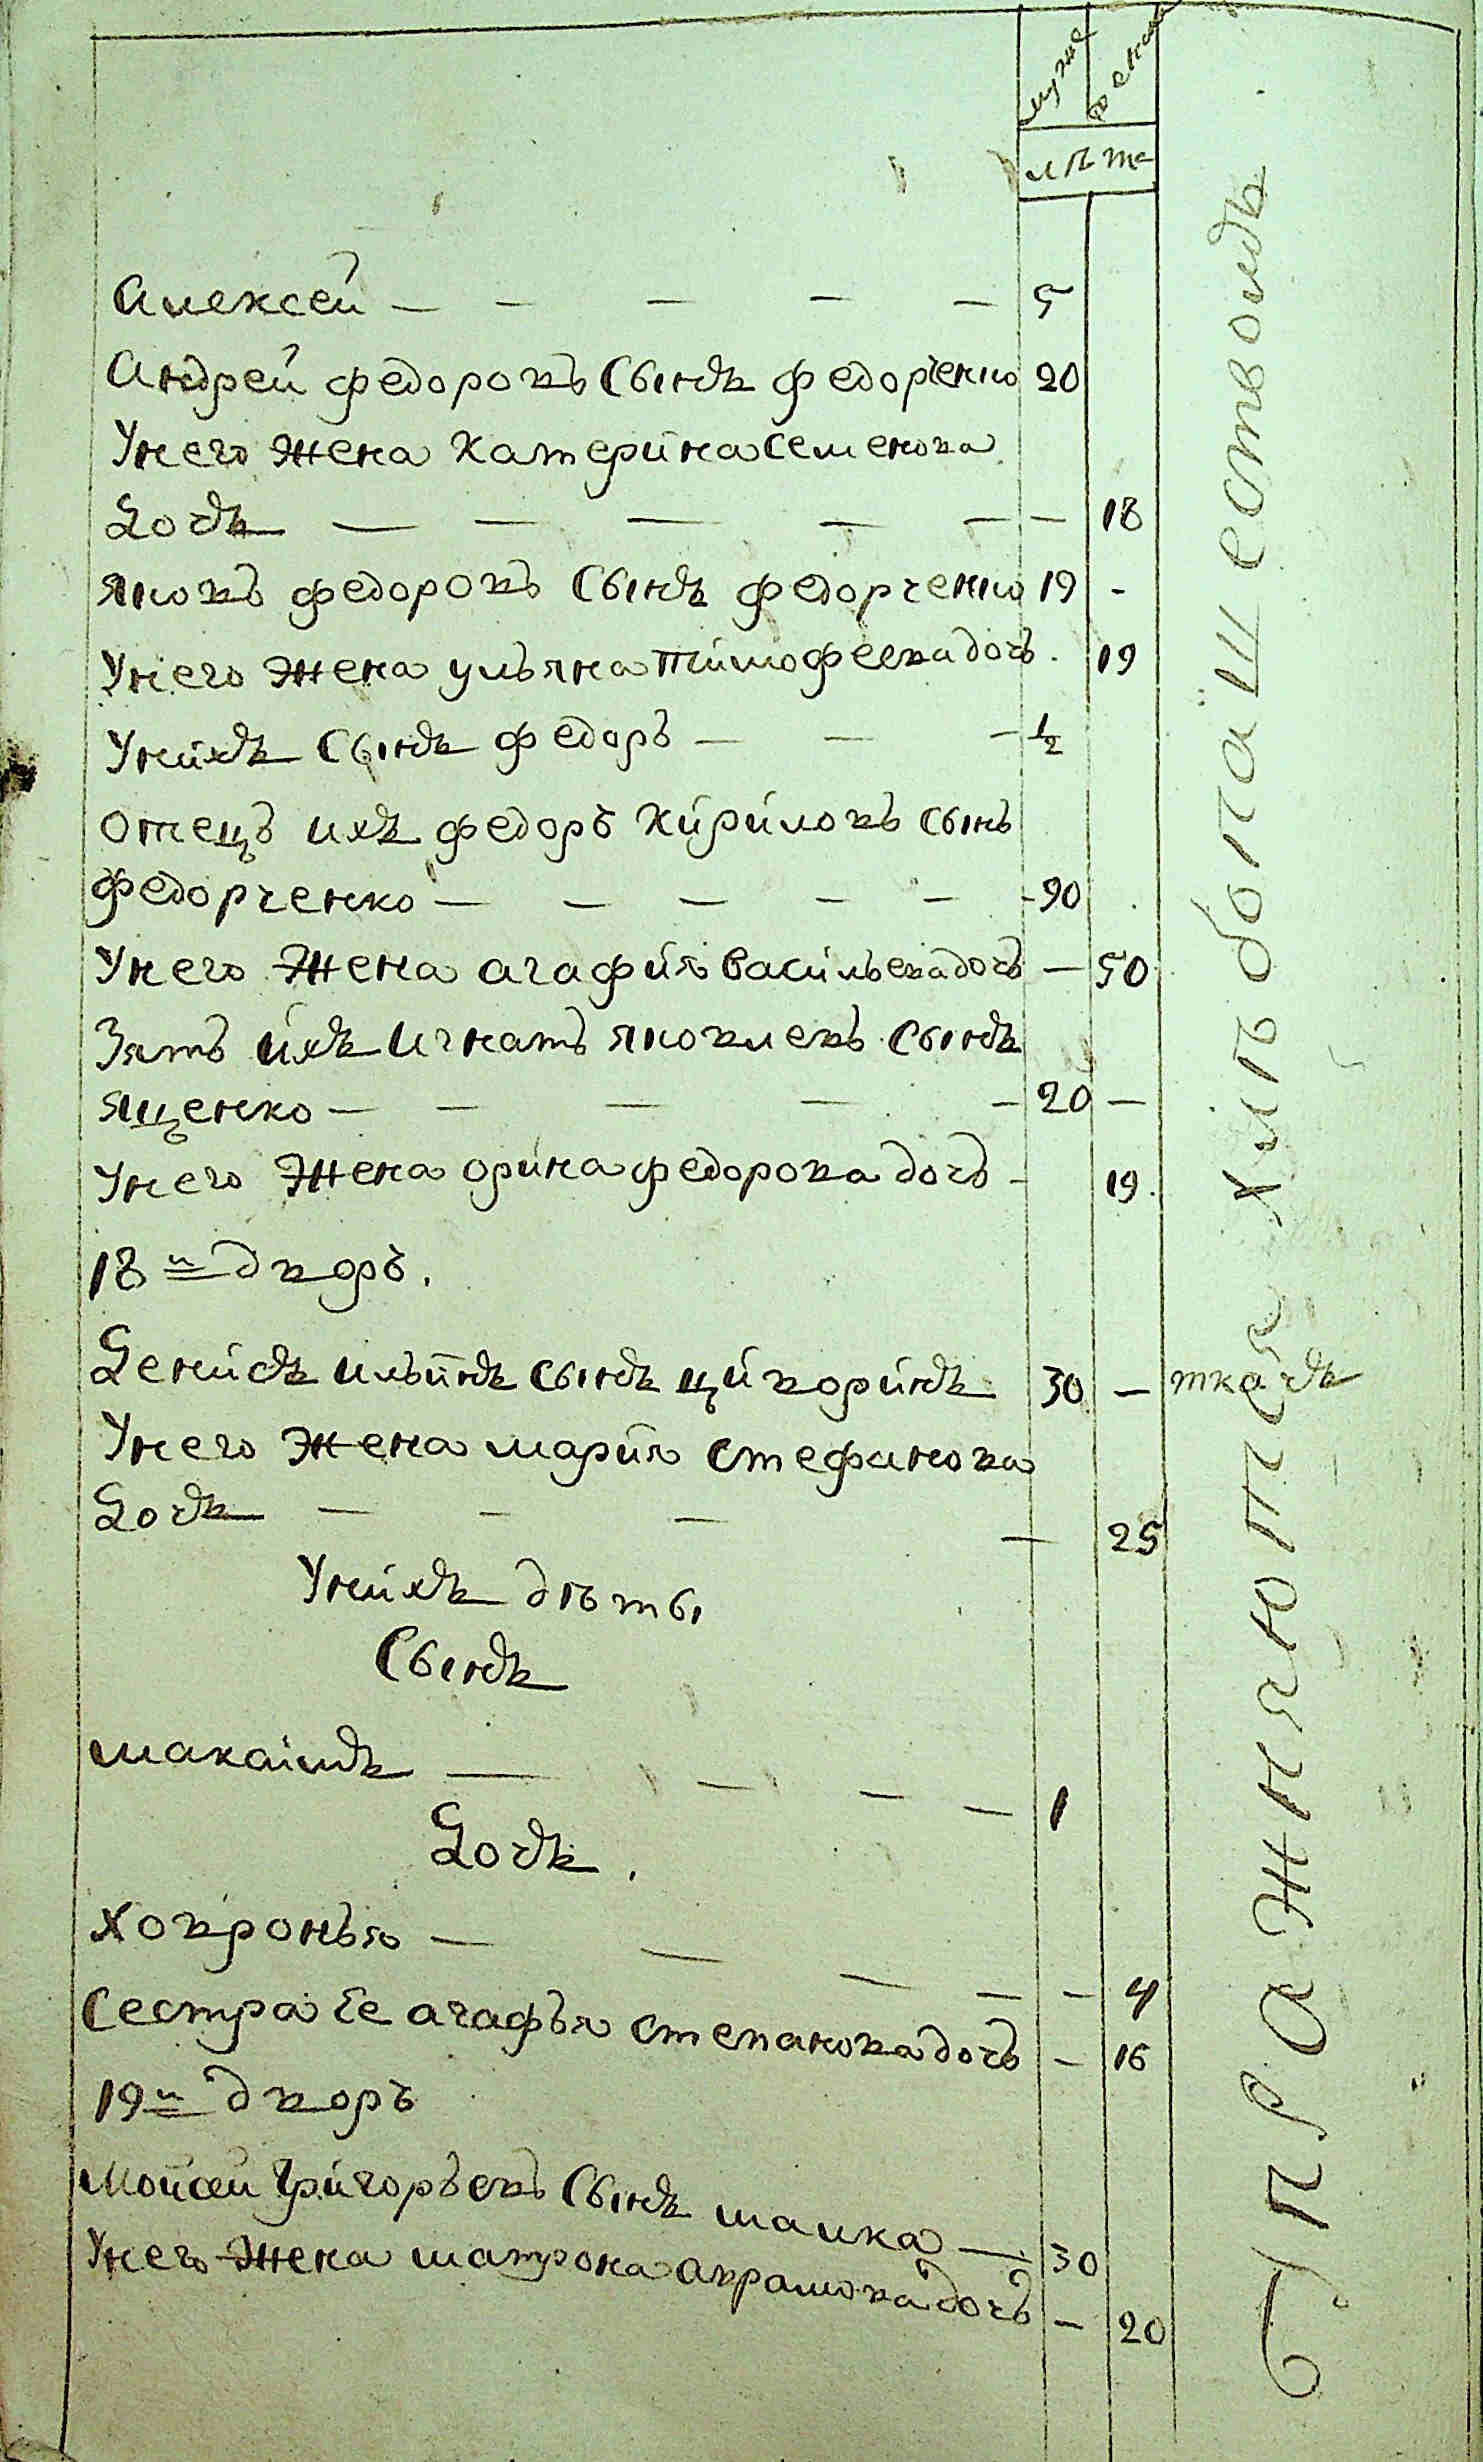 муже женск
лѣта
Алексей — — — — — 5
Андрей федоровъ Сынъ федорченко 20
Унего жена катерина семенова
Дочъ — — — — — — 18
яковъ федоровъ Сынъ федорченко 19 -
Унего жена ульяна тимофеева дочъ. 19
Унихъ Сынъ федоръ — — — 1/2
отецъ ихъ федоръ кирйловъ сынъ
федорченко — — — — — - 90
Унего жена агафия васильева дочъ — 50
Зять ихъ игнатъ яковлевъ сынъ
ященко — — — — — 20 —
Унего жена орина федорова дочъ - 19.
18й дворъ.
Денисъ ильинъ сынъ цикоринъ 30 — ткачъ
Унего жена мария стефанова
Дочъ — — — — 25
Унихъ дѣты
Сынъ
макаимъ — — — — 1
Дочъ.
ховронья — — — — - 4
Сестра Ее агафья степанова дочъ - 16
19й дворъ
Мойсей григорьевъ Сынъ малка — 30
Унего жена матрона аврамова дочъ - 20
упражняются хлѣбопашествомъ